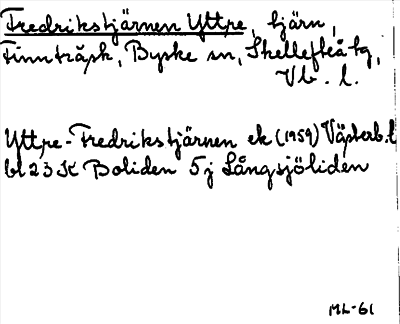 Fredrikstjärnen Yttre, tjärn,
Finnträsk, Byske sn, Skellefteå tg,
Vb. l.
Yttre-Fredrikstjärnen ek (1959) Västerb. l
bl 23 K Boliden 5j Långsjöliden
ML-61